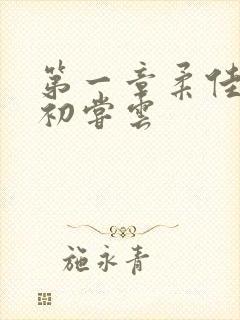 第一章柔佳
初尝雲
施永青